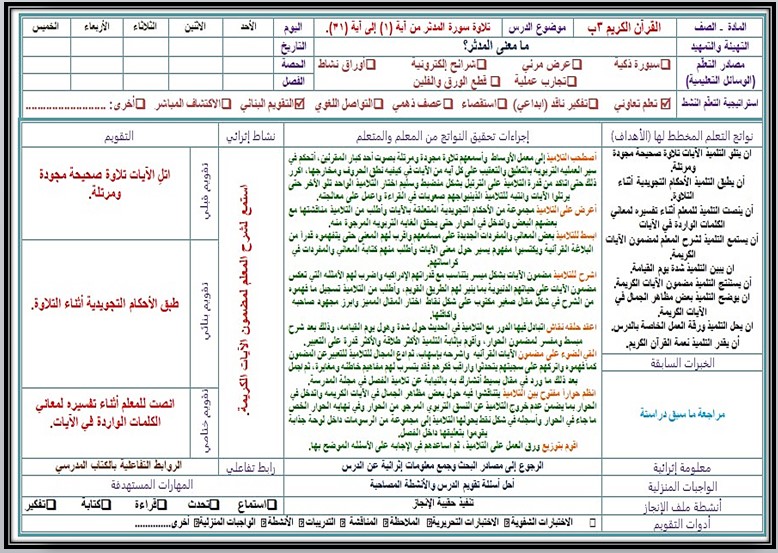 المادة ـ الصف
القرآن الكريم ٣ب
موضوع الدرس
تلاوة سورة المدثر من آية (١) إلى آية (٣١).
اليوم
الأحد
الاثنين
الثلاثاء
الأربعاء
الخميس
التهيئة والتمهيد
ما معنى المدثر؟
التاريخ
مصادر التعلم
(الوسائل التعليمية)
سبورة ذكية
عرض مرئي
شرائح إلكترونية
أوراق نشاط
تجارب عملية
قطع الورق والفلين
الحصة
الفصل
استراتيجية التعلم النشط
تعلم تعاوني
تفكير ناقد (ابداعي)
استقصاء
عصف ذهمي
التواصل اللغوي
التقويم البنائي
الاكتشاف المباشر
أخرى: ..........................
نواتج التعلم المخطط لها (الأهداف)
إجراءات تحقيق النواتج من المعلم والمتعلم
نشاط إثرائي
التقويم
ان يتلو التلميذ الآيات تلاوة صحيحة مجودة
ومرتلة.
ان يطبق التلميذ الأحكام التجويدية أثناء
التلاوة.
أن ينصت التلميذ للمعلم أثناء تفسيره لمعاني
الكلمات الواردة في الآيات.
أن يستمع التلميذ لشرح المعلم لمضمون الآيات
الكريمة.
ان يبين التلميذ شدة يوم القيامة.
أن يستنتج التلميذ مضمون الآيات الكريمة.
ان يوضح التلميذ بعض مظاهر الجمال في
الآيات الكريمة.
ان يحل التلميذ ورقة العمل الخاصة بالدرس.
أن يقدر التلميذ نعمة القرآن الكريم.
الخبرات السابقة
مراجعة ما سبق دراستة
أصطحب التلاميذ إلى معمل الأوساط وأسمعهم تلاوة مجودة ومرتلة بصوت أحد كبار المقرئين، أتحكم في
سير العمليه التربويه بالتعلق والتعقيب على كل آية من الآيات في كيفيه نطق الحروف ومخارجها، اكرر
ذلك حتى اتاكد من قدرة التلاميذ على الترتيل بشكل منضبط وسليم اختار التلاميذ الواحد تلو الآخر حتى
يرتلوا الآيات وانتبه للتلاميذ الذين يواجههم صعوبات في القراءة واعمل على معالجته.
أعرض على التلاميذ مجموعة من الأحكام التجويدية المتعلقة بالآيات وأطلب من التلاميذ مناقشتها مع
بعضهم البعض وادخل في الحوار حتى يحقق الغايه التربويه المرجوة منه.
ابسط للتلاميذ بعض المعاني والمفردات الجديدة على مسامعهم واقرب لهم المعنى حتى يتفهموه قدراً من
البلاغة القرآنية ويكتسبوا مفهوم يسير حول معنى الآيات وأطلب منهم كتابة المعاني والمفردات في
كراساتهم.
اشرح للتلاميذ مضمون الآيات بشكل ميسر يتناسب مع قدراتهم الإدراكيه واضرب لهم الأمثله التي تعكس
مضمون الآيات على حياتهم الدنيوية بما ينير لهم الطريق القويم، وأطلب من التلاميذ تسجيل ما فهموه
من الشرح في شكل مقال صغير مكتوب على شكل نقاط اختار المقال المميز وابرز مجهود صاحبه
واكافئها.
اعقد حلقه نقاش اتبادل فيها الدور مع التلاميذ في الحديث حول شدة وهول يوم القيامه، وذلك بعد شرح
مبسط ومفسر لمضمون الحوار، وأقوم بإثابة التلميذ الأكثر طلاقة والأكثر قدرة على التعبير.
القي الضوء على مضمون الآيات القرآنيه واشرحه بإسهاب، ثم ادع المجال للتلاميذ للتعبير عن المضمون
كما فهموه واتركهم على سجيتهم يتحدثوا واراقب فكرهم فقد يتسرب لهم مفاهيم خاطئه ومغايرة، ثم اجمل
بعد ذلك ما ورد في مقال بسيط أتشارك به بالنيابة عن تلاميذ الفصل في مجلة المدرسة.
انظم حواراً مفتوح بين التلاميذ يتناقشوا فيه حول بعض مظاهر الجمال في الآيات الكريمه وادخل في
الحوار بما يضمن عدم خروج التلاميذ عن النسق التربوي المرجو من الحوار وفي نهاية الحوار الخص
ما جاء في الحوار وأسجله في شكل نقط يحولها التلاميذ إلى مجموعة من الرسومات داخل لوحة جذابة
يقوموا بتعليقها داخل الفصل.
اقوم بتوزيع ورق العمل على التلاميذ، ثم اساعدهم في الإجابه على الأسئله الموضح بها.
استمع لشرح المعلم لمضمون الآيات الكريمة.
تقويم قبلي
اتل الآيات تلاوة صحيحة مجودة
ومرتلة.
تقويم بنائي
طبق الأحكام التجويدية أثناء التلاوة.
تقويم ختامي
انصت للمعلم أثناء تفسيره لمعاني
الكلمات الواردة في الآيات.
معلومة إثرائية
الرجوع إلى مصادر البحث وجمع معلومات إثرائية عن الدرس
رابط تفاعلي
الروابط التفاعلية بالكتاب المدرسي
الواجبات المنزلية
أحل أسئلة تقويم الدرس والأنشطة المصاحبة
المهارات المستهدفة
أنشطة ملف الإنجاز
تنفيذ حقيبة الإنجاز
استماع
تحدث
قراءة
كتابة
تفكير
أدوات التقويم
الاختبارات الشفوية
الاختبارات التحريرية
الملاحظة
المناقشة
التدريبات
الأنشطة
الواجبات المنزلية
أخرى...............